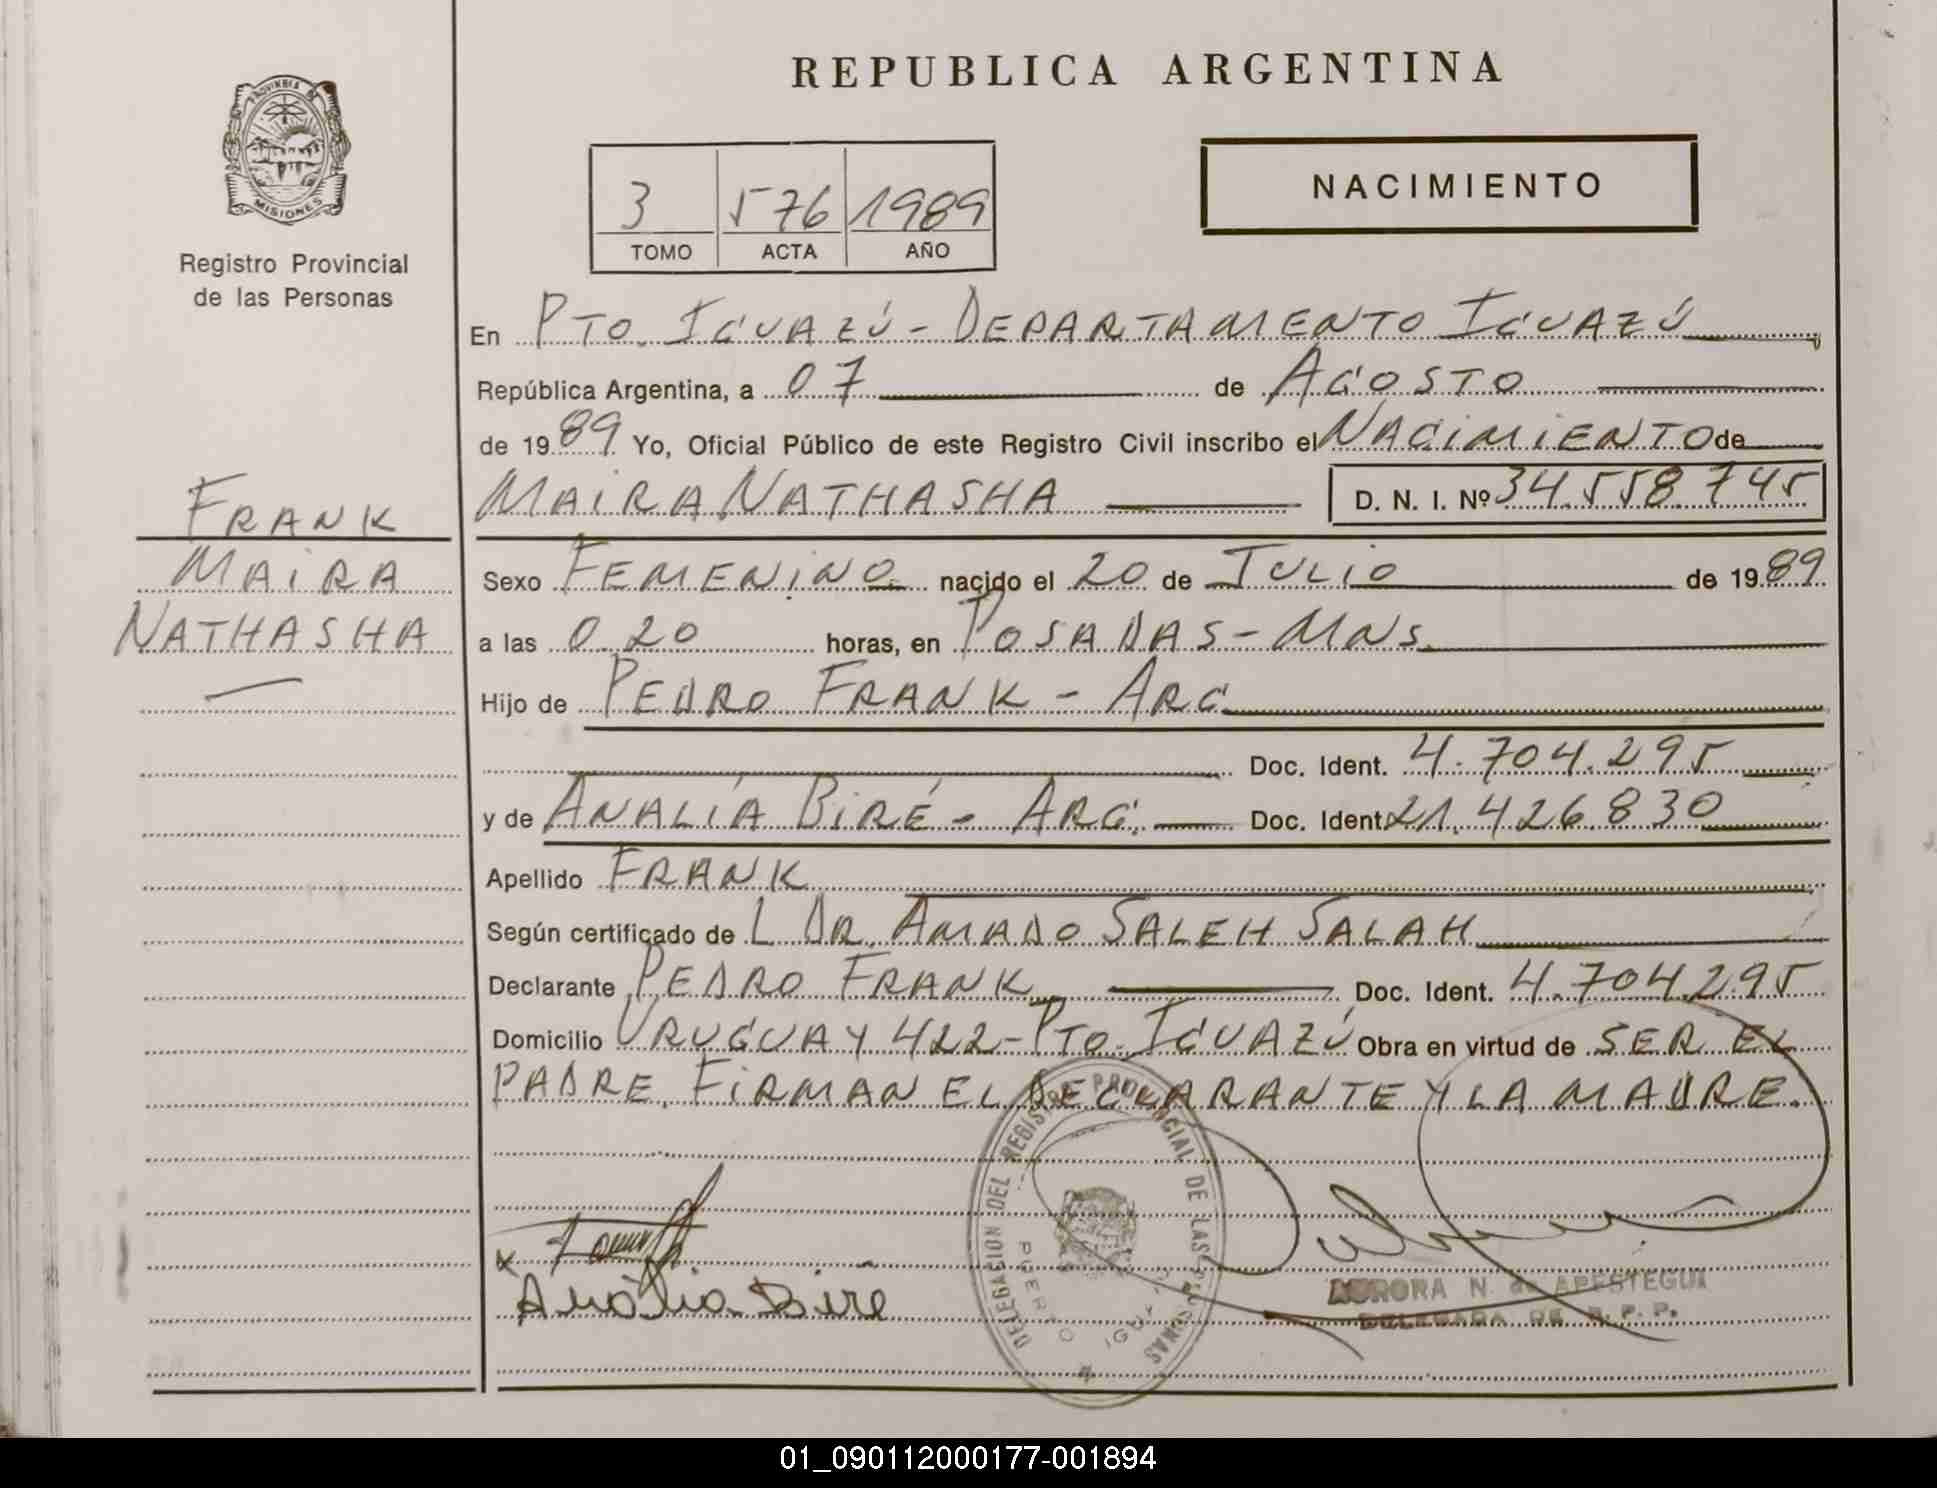 REPUBLICA ARGENTINA
PROVINCIA DE
MISIONES
Registro Provincial
de las Personas
3 576 1989
TOMO ACTA AÑO
NACIMIENTO
En PTO. IGUAZÚ - DEPARTAMENTO IGUAZÚ
República Argentina, a 07 de AGOSTO
de 1989 Yo, Oficial Público de este Registro Civil inscribo el NACIMIENTO de
FRANK
MAIRA NATHASHA D. N. I. Nº 34.558.745
MAIRA
Sexo FEMENINO nacido el 20 de JULIO de 1989
NATHASHA
a las 0.20 horas, en POSADAS - MNS.
Hijo de PEDRO FRANK - ARG.
Doc. Ident. 4.704.295
y de ANALÍA BIRÉ - ARG. Doc. Ident. 21.426.830
Apellido FRANK
Según certificado de L DR. AMADO SALEH SALAH
Declarante PEDRO FRANK Doc. Ident. 4.704.295
Domicilio URUGUAY 422 - PTO. IGUAZÚ Obra en virtud de SER EL
PADRE. FIRMAN EL DECLARANTE Y LA MADRE.
DELEGACION DEL REGISTRO PROVINCIAL DE LAS PERSONAS
PUERTO IGUAZU
x
Analia Biré
AURORA N. de APESTEGUI
DELEGADA DE R. P. P.
01_090112000177-001894